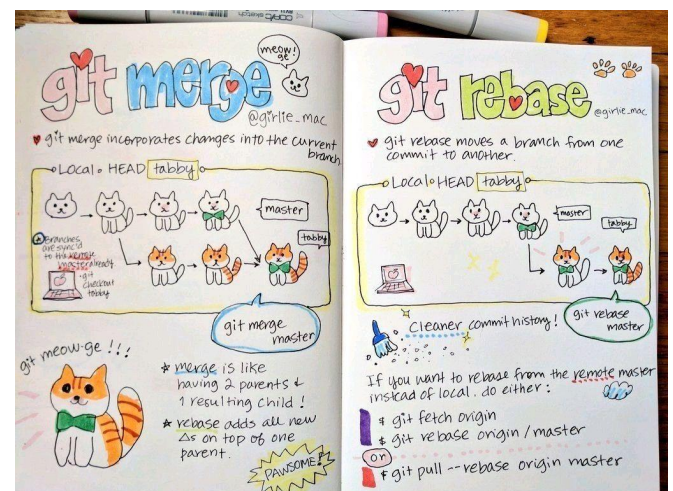 git merge
meow!
ge
@girlie_mac
git merge incorporates changes into the current
branch
Local HEAD tabby
master
tabby
Branches
are sync'd
to the remote
master already
git
checkout
tabby
git merge
master
git meow-ge !!!
merge is like
having 2 parents &
1 resulting child !
rebase adds all new
Δs on top of one
parent.
PAWSOME!
git rebase
@girlie_mac
git rebase moves a branch from one
commit to another.
Local HEAD tabby
master
tabby
git rebase
master
Cleaner commit history!
If you want to rebase from the remote master
instead of local, do either:
$ git fetch origin
$ git rebase origin/master
or
$ git pull --rebase origin master